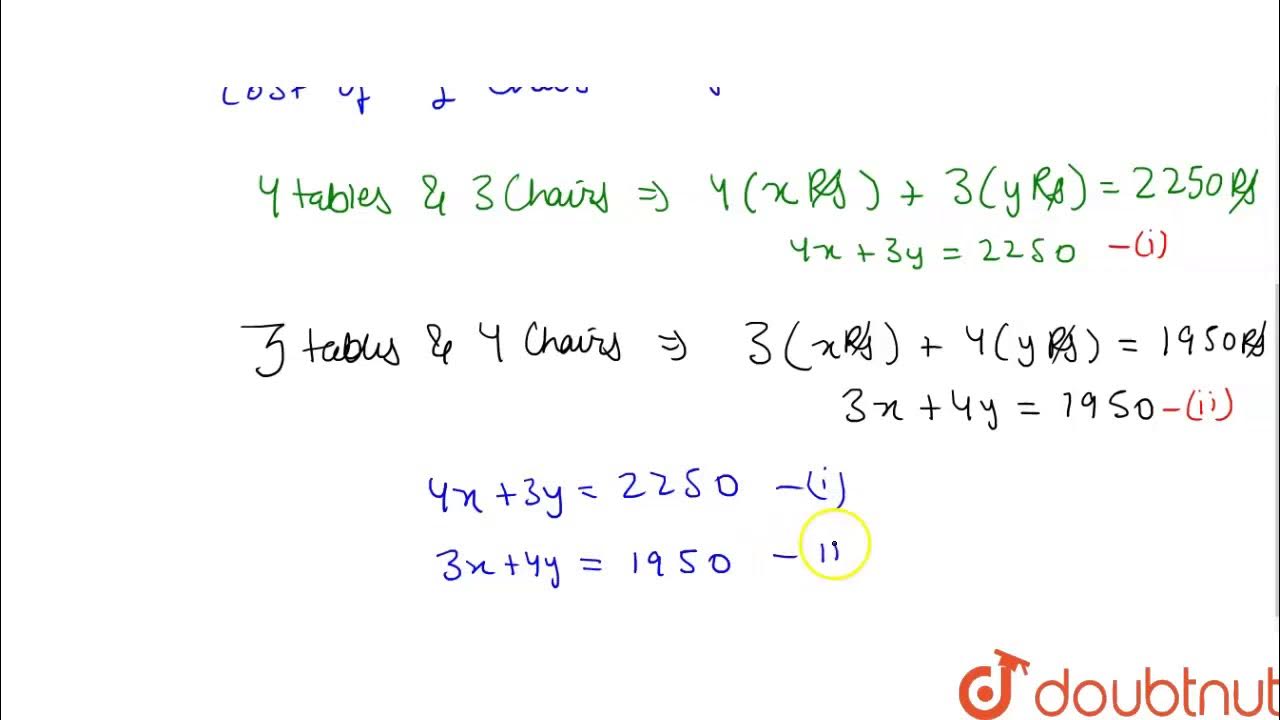 4 tables & 3 Chairs ⇒ 4(x Rs) + 3(y Rs) = 2250 Rs
4x + 3y = 2250 -(i)
3 tables & 4 Chairs ⇒ 3(x Rs) + 4(y Rs) = 1950 Rs
3x + 4y = 1950 -(ii)
4x + 3y = 2250 -(i)
3x + 4y = 1950 - ii
doubtnut